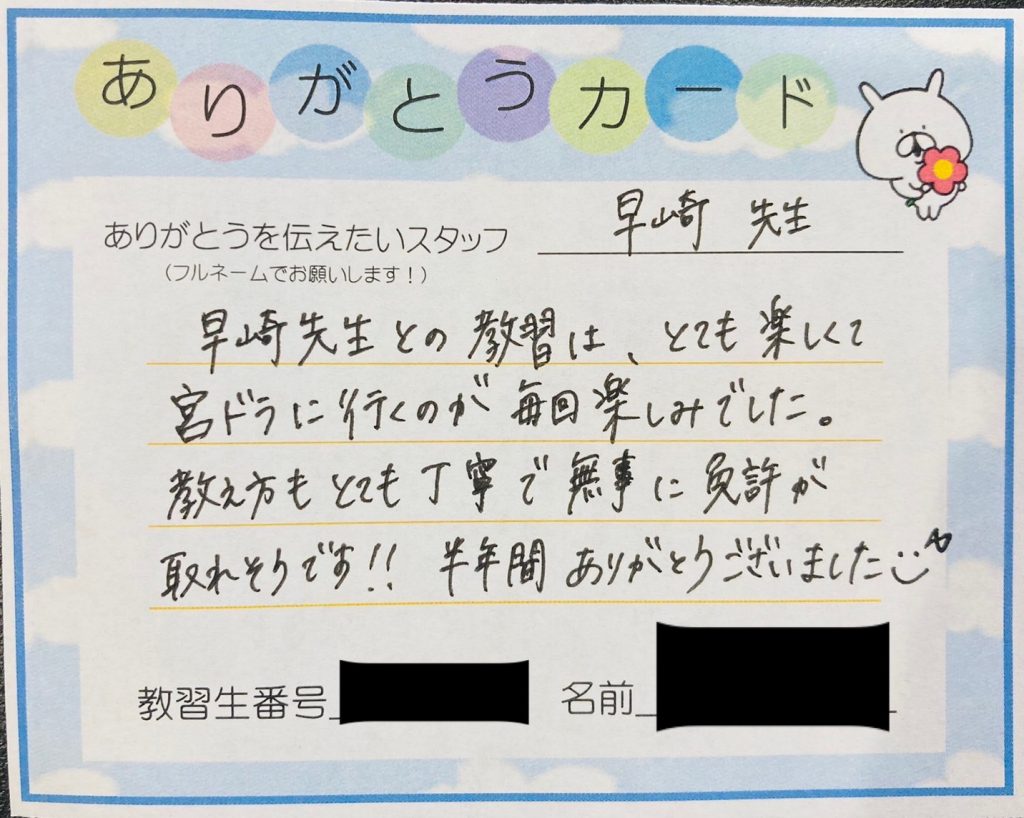 ありがとうカード
ありがとうを伝えたいスタッフ 早崎 先生
(フルネームでお願いします!)
早崎先生との教習は、とても楽しくて
宮ドラに行くのが毎回楽しみでした。
教え方もとても丁寧で無事に免許が
取れそうです!! 半年間ありがとうございました
教習生番号 名前